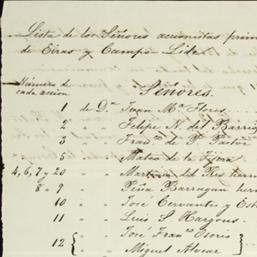 Lista de los Señores accionistas
de Eiras y Campo Lide
Número de
cada accion
Señores.
1 de Dn. Juan Ma. Flores
2 " " Felipe N. del Barrio
3 " " Franco. de P. Pastor
5 " " Mateo de la
4, 6, 7 y 20 " " Martinez del Rio
8 " 9 " " Peña Barragan
10 " " José Cervantes y
11 " " Luis S. Hargous
12 " " José Franco.
" " Miguel